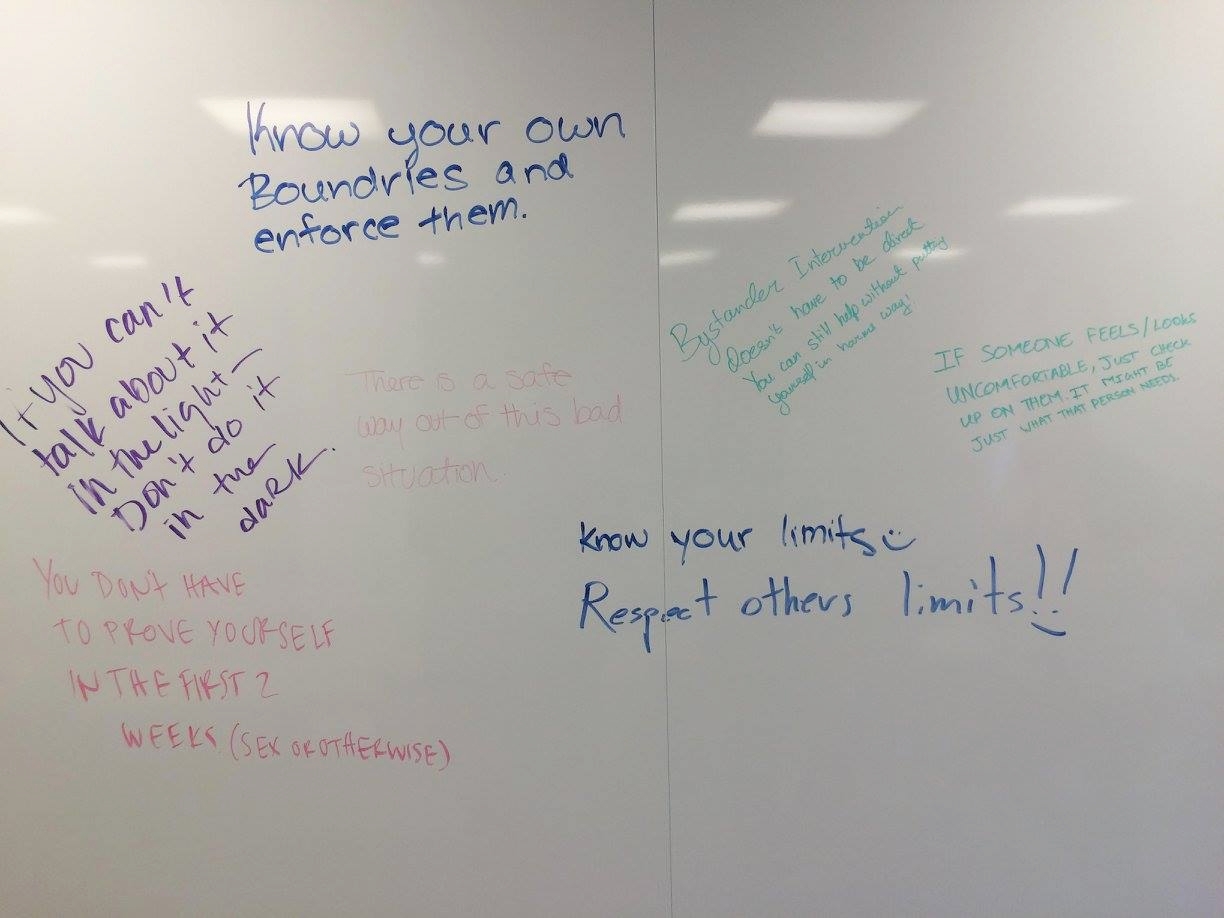 Know your own
Boundries and
enforce them.
If you can't
talk about it
in the light—
Don't do it
in the
dark.
There is a safe
way out of this bad
situation.
YOU DON'T HAVE
TO PROVE YOURSELF
IN THE FIRST 2
WEEKS (SEX OR OTHERWISE)
Bystander Intervention
doesn't have to be direct
You can still help without putting
yourself in harms way!
IF SOMEONE FEELS/LOOKS
UNCOMFORTABLE, JUST CHECK
UP ON THEM. IT MIGHT BE
JUST WHAT THAT PERSON NEEDS.
Know your limits
Respect others limits!!